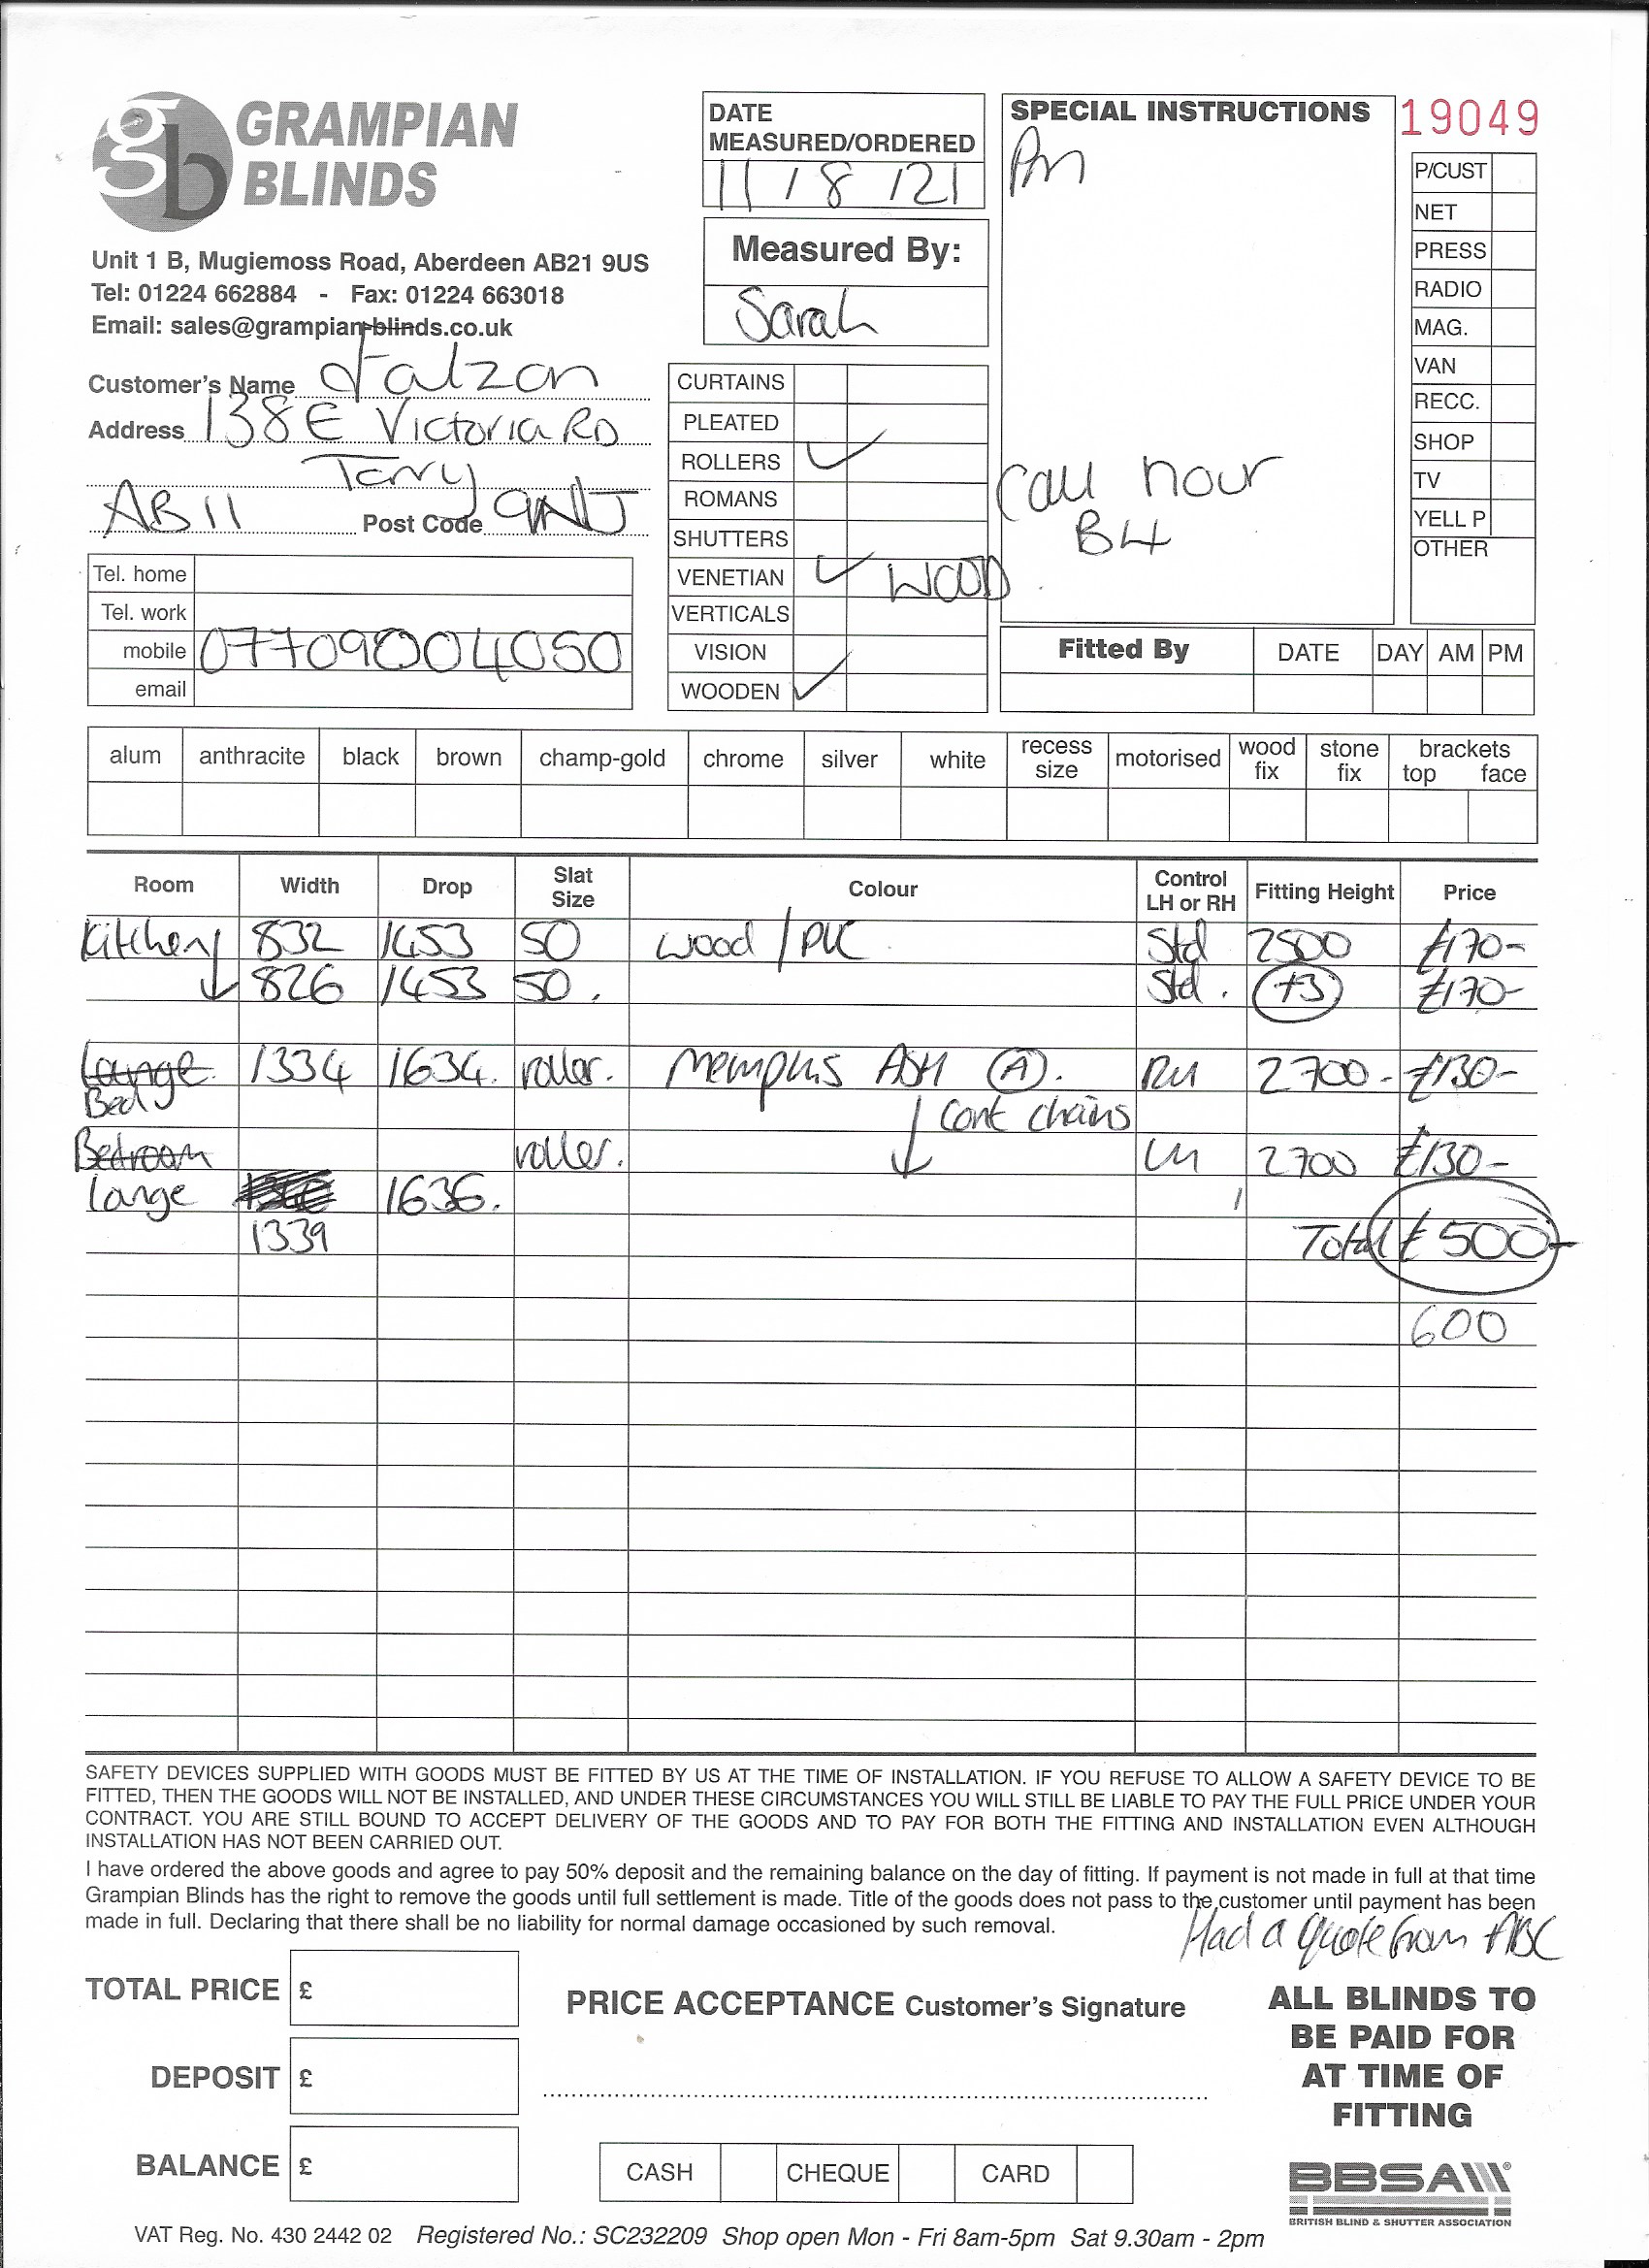 gb GRAMPIAN
BLINDS
Unit 1 B, Mugiemoss Road, Aberdeen AB21 9US
Tel: 01224 662884 - Fax: 01224 663018
Email: sales@grampian-blinds.co.uk
Customer's Name Falzon
Address 138E Victoria RD
Torry
AB11 Post Code 9NJ
Tel. home
Tel. work
mobile 07709004050
email
DATE
MEASURED/ORDERED
11/8/21
Measured By:
Sarah
CURTAINS
PLEATED
ROLLERS ✓
ROMANS
SHUTTERS
VENETIAN ✓ WOOD
VERTICALS
VISION
WOODEN ✓
SPECIAL INSTRUCTIONS
Pm
Call hour
B4
19049
P/CUST
NET
PRESS
RADIO
MAG.
VAN
RECC.
SHOP
TV
YELL P
OTHER
Fitted By DATE DAY AM PM
alum anthracite black brown champ-gold chrome silver white recess size motorised wood fix stone fix brackets top face
Room Width Drop Slat Size Colour Control LH or RH Fitting Height Price
Kitchen 832 1453 50 wood / PVC Std 2500 £170-
↓ 826 1453 50. Std. (+3) £170-
Lounge 1334 1634. roller. Memphis ASH (A). RH 2700- £130-
Bed ↓ Cont chains
Bedroom roller. LH 2700 £130-
Longe 1636.
1339 Total £500-
600
SAFETY DEVICES SUPPLIED WITH GOODS MUST BE FITTED BY US AT THE TIME OF INSTALLATION. IF YOU REFUSE TO ALLOW A SAFETY DEVICE TO BE
FITTED, THEN THE GOODS WILL NOT BE INSTALLED, AND UNDER THESE CIRCUMSTANCES YOU WILL STILL BE LIABLE TO PAY THE FULL PRICE UNDER YOUR
CONTRACT. YOU ARE STILL BOUND TO ACCEPT DELIVERY OF THE GOODS AND TO PAY FOR BOTH THE FITTING AND INSTALLATION EVEN ALTHOUGH
INSTALLATION HAS NOT BEEN CARRIED OUT.
I have ordered the above goods and agree to pay 50% deposit and the remaining balance on the day of fitting. If payment is not made in full at that time
Grampian Blinds has the right to remove the goods until full settlement is made. Title of the goods does not pass to the customer until payment has been
made in full. Declaring that there shall be no liability for normal damage occasioned by such removal.
Had a quote from ABC
TOTAL PRICE £
DEPOSIT £
BALANCE £
PRICE ACCEPTANCE Customer's Signature
CASH CHEQUE CARD
ALL BLINDS TO
BE PAID FOR
AT TIME OF
FITTING
BBSA
BRITISH BLIND & SHUTTER ASSOCIATION
VAT Reg. No. 430 2442 02 Registered No.: SC232209 Shop open Mon - Fri 8am-5pm Sat 9.30am - 2pm